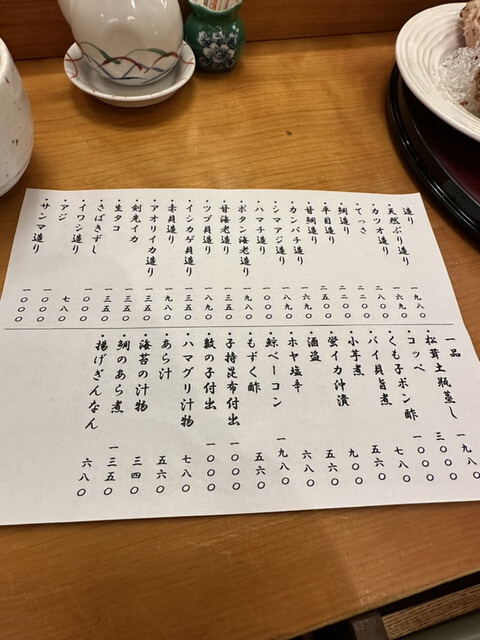 造り
・天然ぶり造り 一九八〇
・カツオ造り 一六九〇
・てっさ 二八〇〇
・鯛造り 二二〇〇
・平目造り 二二〇〇
・甘鯛造り 二五〇〇
・カンパチ造り 一六九〇
・シマアジ造り 一九八〇
・ハマチ造り 一〇〇〇
・ボタン海老造り 一九八〇
・甘海老造り 一三五〇
・ツブ貝造り 一八九〇
・イシカゲ貝造り 一三五〇
・赤貝造り 一九八〇
・アオリイカ造り 一三五〇
・剣先イカ 一三五〇
・生タコ 一三五〇
・さばきずし 一〇〇〇
・イワシ造り 七八〇
・アジ 一〇〇〇
・サンマ造り 一〇〇〇
一品
・松茸土瓶蒸し 一九八〇
・コッペ 三〇〇〇
・くも子ポン酢 一〇〇〇
・バイ貝旨煮 七八〇
・小芋煮 五六〇
・蛍イカ沖漬 九〇〇
・酒盗 五六〇
・ホヤ塩辛 六八〇
・鯨ベーコン 一九八〇
・もずく酢 五六〇
・子持昆布付出 一〇〇〇
・數の子付出 一〇〇〇
・ハマグリ汁物 七八〇
・あら汁 五六〇
・海苔の汁物 三四〇
・鯛のあら煮 一三五〇
・揚げぎんなん 六八〇